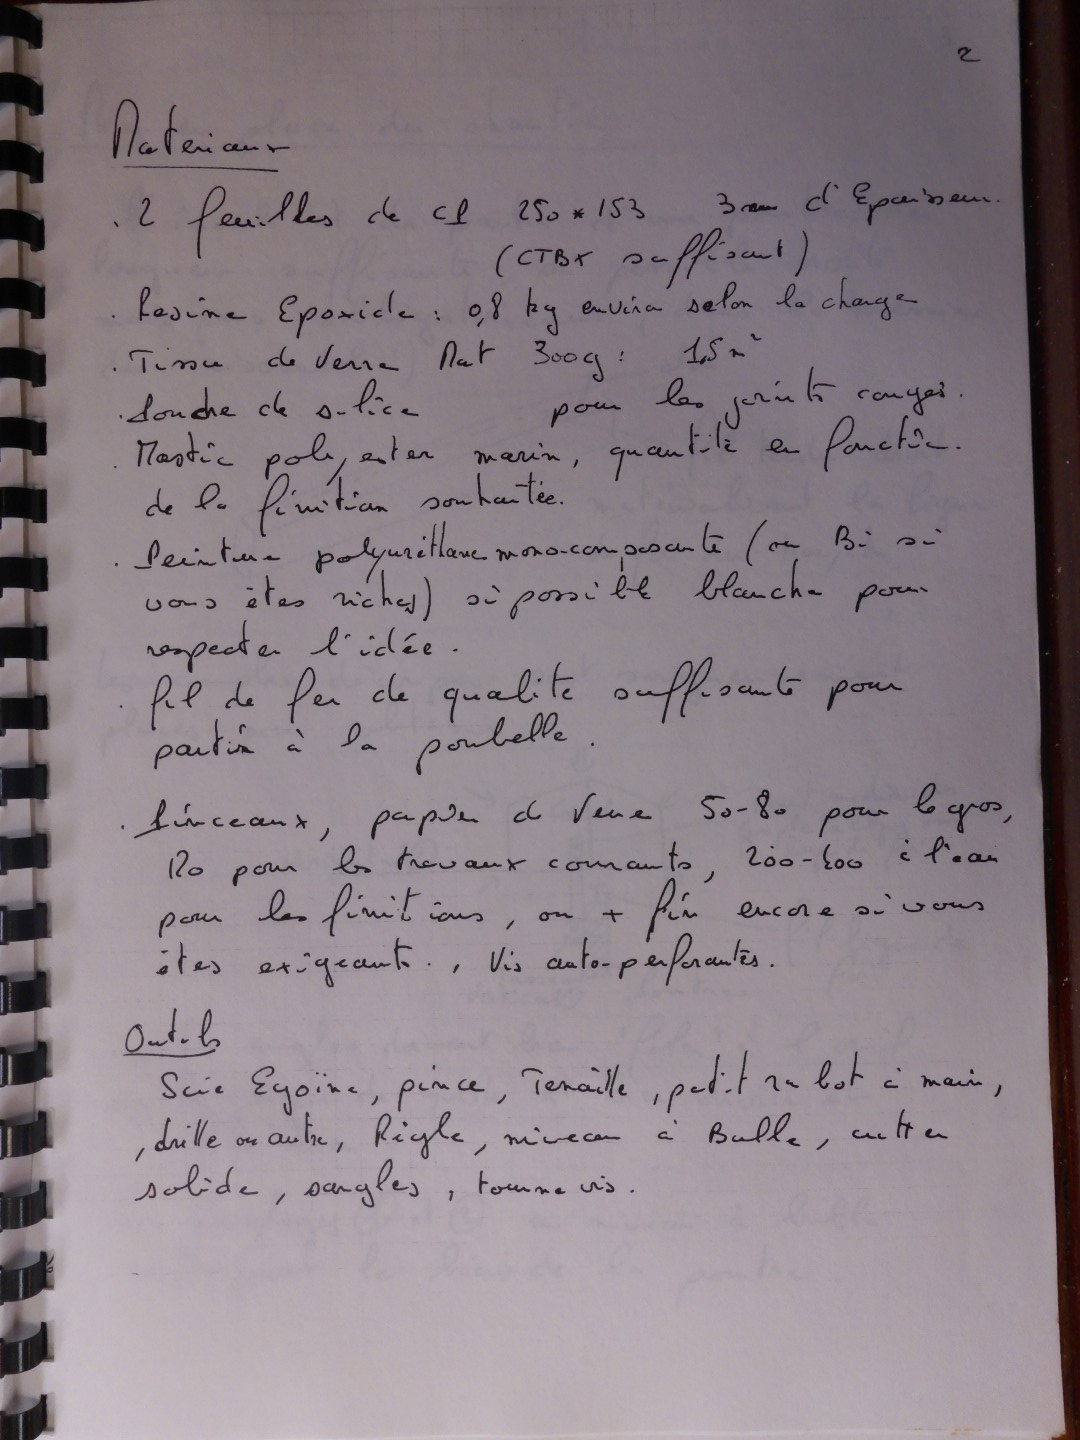 2
Materiaux
. 2 feuilles de CP 250 * 153 3 mm d'Epaisseur.
(CTBX suffisant)
. Resine Epoxide : 0,8 kg environ selon la charge
. Tissu de Verre Mat 300g : 1,5 m²
. Poudre de silice pour les joints congés.
. Mastic polyester marin, quantité en fonction.
de la finition souhaitée.
. Peinture polyuréthane mono-composante (ou Bi si
vous êtes riches) si possible blanche pour
respecter l'idée.
. fil de fer de qualité suffisante pour
partir à la poubelle.
. Pinceaux, papier de Verre 50-80 pour le gros,
120 pour les travaux courants, 200-400 à l'eau
pour les finitions, ou + fin encore si vous
êtes exigeants., Vis auto-perforantes.
Outils
Scie Egoïne, pince, Tenaille, petit rabot à main,
, drille ou autre, Règle, niveau à Bulle, cutter
solide, sangles, tournevis.